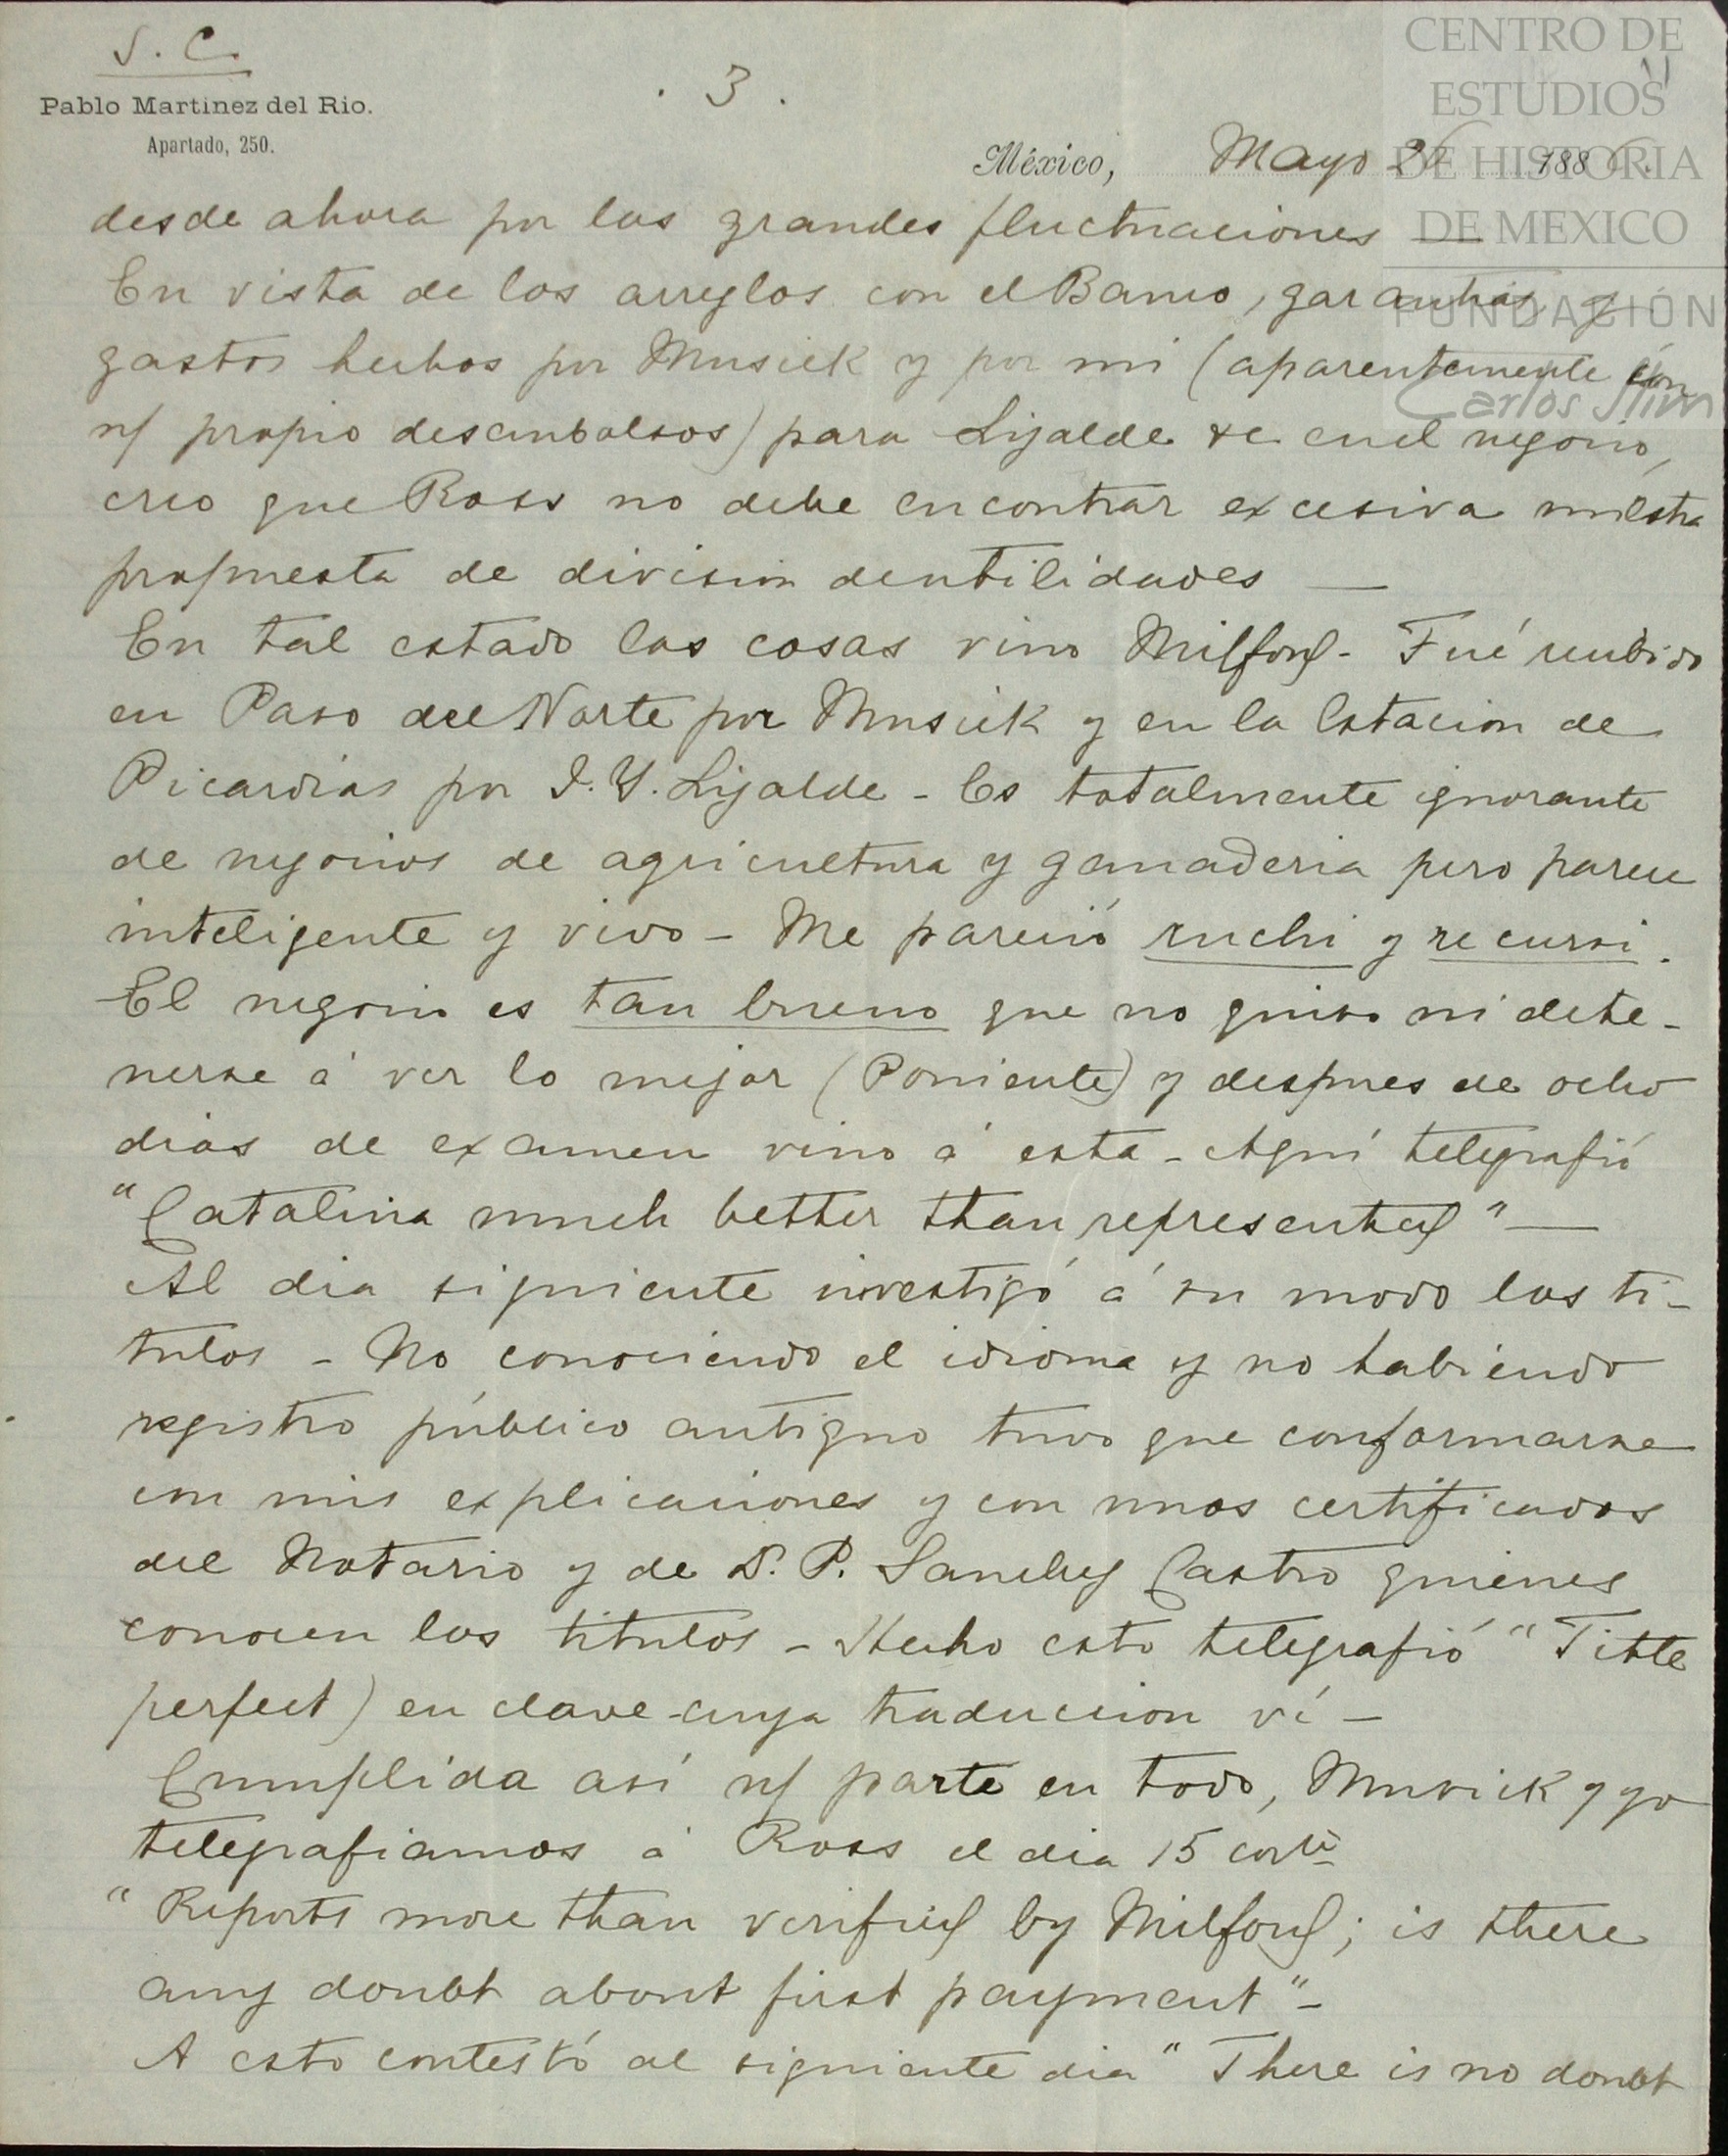 S. C.
Pablo Martinez del Rio.
Apartado, 250.
. 3 .
CENTRO DE
ESTUDIOS
DE HISTORIA
DE MEXICO
FUNDACIÓN
Carlos Slim
México, Mayo 188
desde ahora por las grandes fluctuaciones —
En vista de los arreglos con el Banco, garantias y
gastos hechos por Musick y por mi (aparentemente con
n/ propio desembolsos) para Lijalde &c en el negocio,
creo que Ross no debe encontrar excesiva nuestra
propuesta de division de utilidades —
En tal estado las cosas vino Milford - Fué recibido
en Paso del Norte por Musick y en la Estacion de
Picardias por J. Y. Lijalde - Es totalmente ignorante
de negocios de agricultura y ganaderia pero parece
inteligente y vivo - Me pareció ruchi y recursi.
El negocio es tan bueno que no quiso ni dete-
nerse á ver lo mejor (Poniente) y despues de ocho
dias de examen vino á esta - Aquí telegrafió
"Catalina much better than represented" —
Al dia siguiente investigó á su modo los ti-
tulos - No conociendo el idioma y no habiendo
registro público antiguo tuvo que conformarse
con mis explicaciones y con unos certificados
del Notario y de D. P. Sanchez Castro quienes
conocen los titulos - Hecho esto telegrafió "Title
perfect) en clave cuya traduccion ví -
Cumplida así n/ parte en todo, Musick y yo
telegrafiamos á Ross el dia 15 corte
"Reports more than verified by Milford; is there
any doubt about first payment" -
A esto contestó al siguiente dia "There is no doubt